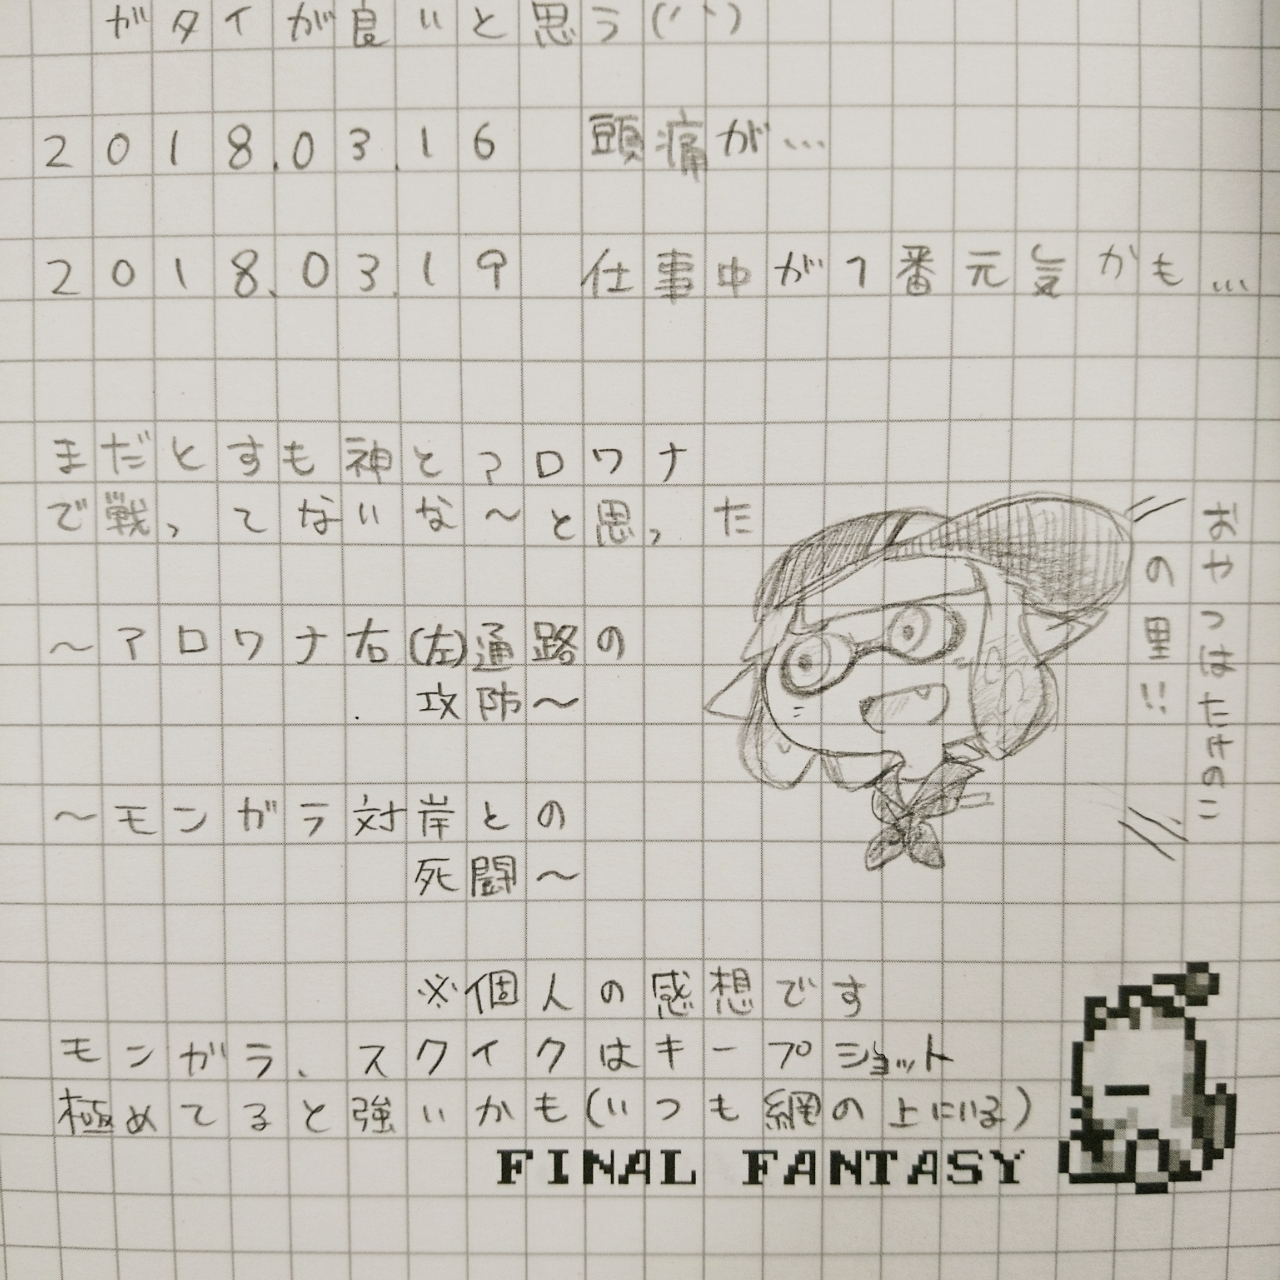 がタイが良いと思う('')
2018.03.16 頭痛が…
2018.03.19 仕事中が1番元気かも…
まだとすも神とアロワナ
で戦ってないな～と思った
～アロワナ右(左)通路の
攻防～
～モンガラ対岸との
死闘～
おやつはたけのこ
の里!!
※個人の感想です
モンガラ、スクイクはキープショット
極めてると強いかも(いつも網の上にいる)
FINAL FANTASY